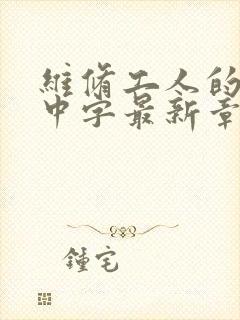 維修工人的
中字最新章
鍾宅